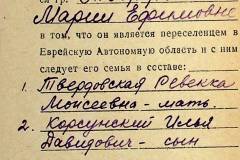 Марии Ефимовне
в том, что он является переселенцем в
Еврейскую Автономную область и с ним
следует его семья в составе:
1. Твердовская Ревекка
Моисеевна - мать.
2. Корсунский Илья
Давидович - сын